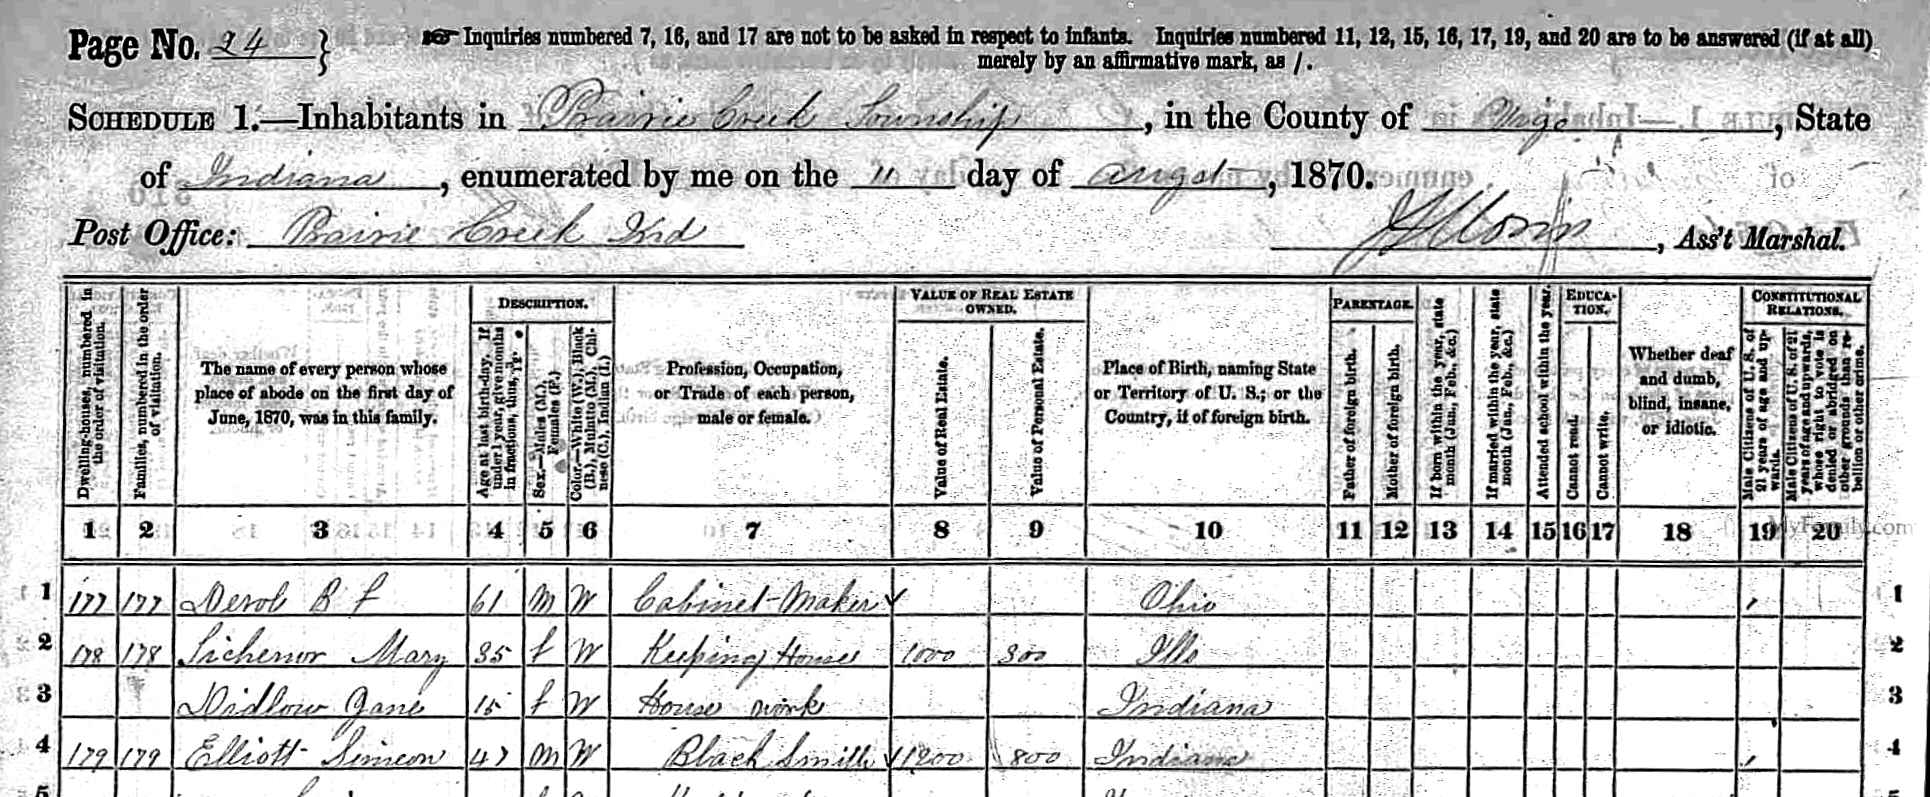 Page No. 24
Inquiries numbered 7, 16, and 17 are not to be asked in respect to infants. Inquiries numbered 11, 12, 15, 16, 17, 19, and 20 are to be answered (if at all)
merely by an affirmative mark, as /.
SCHEDULE 1.—Inhabitants in Prairie Creek Township, in the County of Vigo, State
of Indiana, enumerated by me on the 11 day of augst, 1870.
Post Office: Prairie Creek Ind
, Ass't Marshal.
Dwelling-houses, numbered in the order of visitation.
Families, numbered in the order of visitation.
The name of every person whose place of abode on the first day of June, 1870, was in this family.
DESCRIPTION.
Age at last birth-day. If under 1 year, give months in fractions, thus,
Sex.—Males (M.), Females (F.)
Color.—White (W.), Black (B.), Mulatto (M.), Chinese (C.), Indian (I.)
Profession, Occupation, or Trade of each person, male or female.
VALUE OF REAL ESTATE OWNED.
Value of Real Estate.
Value of Personal Estate.
Place of Birth, naming State or Territory of U. S.; or the Country, if of foreign birth.
PARENTAGE.
Father of foreign birth.
Mother of foreign birth.
If born within the year, state month (Jan., Feb., &c.)
If married within the year, state month (Jan., Feb., &c.)
Attended school within the year.
EDUCATION.
Cannot read.
Cannot write.
Whether deaf and dumb, blind, insane, or idiotic.
CONSTITUTIONAL RELATIONS.
Male Citizens of U. S. of 21 years of age and upwards.
Male Citizens of U. S. of 21 years of age and upwards, whose right to vote is denied or abridged on other grounds than rebellion or other crime.
1 2 3 4 5 6 7 8 9 10 11 12 13 14 15 16 17 18 19 20
MyFamily.com
1 177 177 B f 61 M W Cabinet-Maker Ohio 1
2 178 178 Mary 35 f W Keeping House 1000 300 Ills 2
3 Didlow Jane 15 f W House work Indiana 3
4 179 179 Elliott Simeon 47 M W Black Smith 1200 800 Indiana 4
5 5